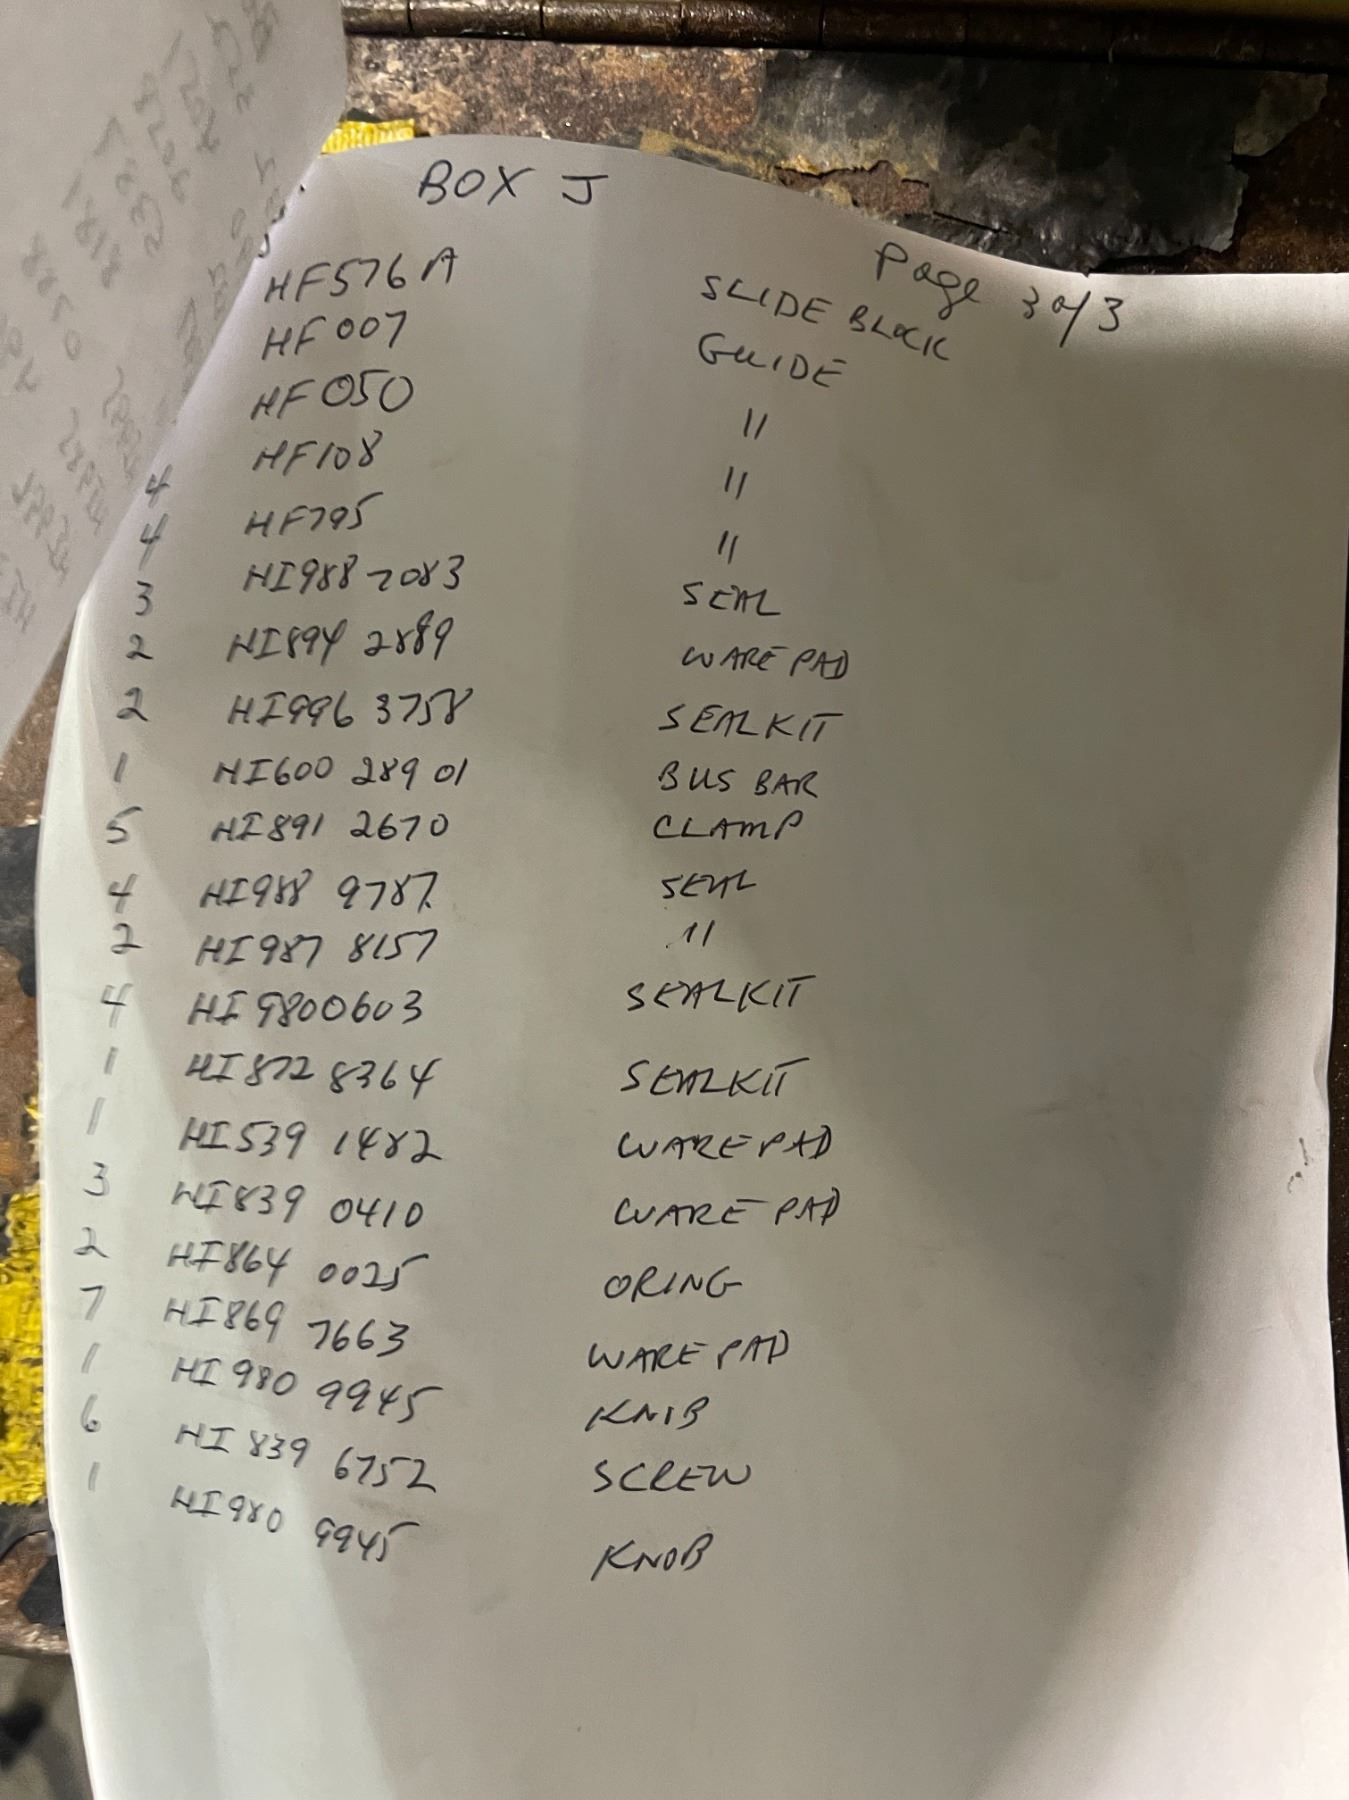 BOX J
Page 3 of 3
HF576A SLIDE BLOCK
HF007 GUIDE
HF050 "
4 HF108 "
4 HF795 "
3 HI988 7083 SEAL
2 HI894 2889 WARE PAD
2 HI996 3758 SEAL KIT
1 HI600 289 01 BUS BAR
5 HI891 2670 CLAMP
4 HI988 9787 SEAL
2 HI987 8157 "
4 HI9800603 SEAL KIT
1 HI872 8364 SEAL KIT
1 HI539 1482 WARE PAD
3 HI839 0410 WARE PAD
2 HI864 0025 ORING
7 HI869 7663 WARE PAD
1 HI980 9945 KNIB
6 HI839 6752 SCREW
1 HI980 9945 KNOB